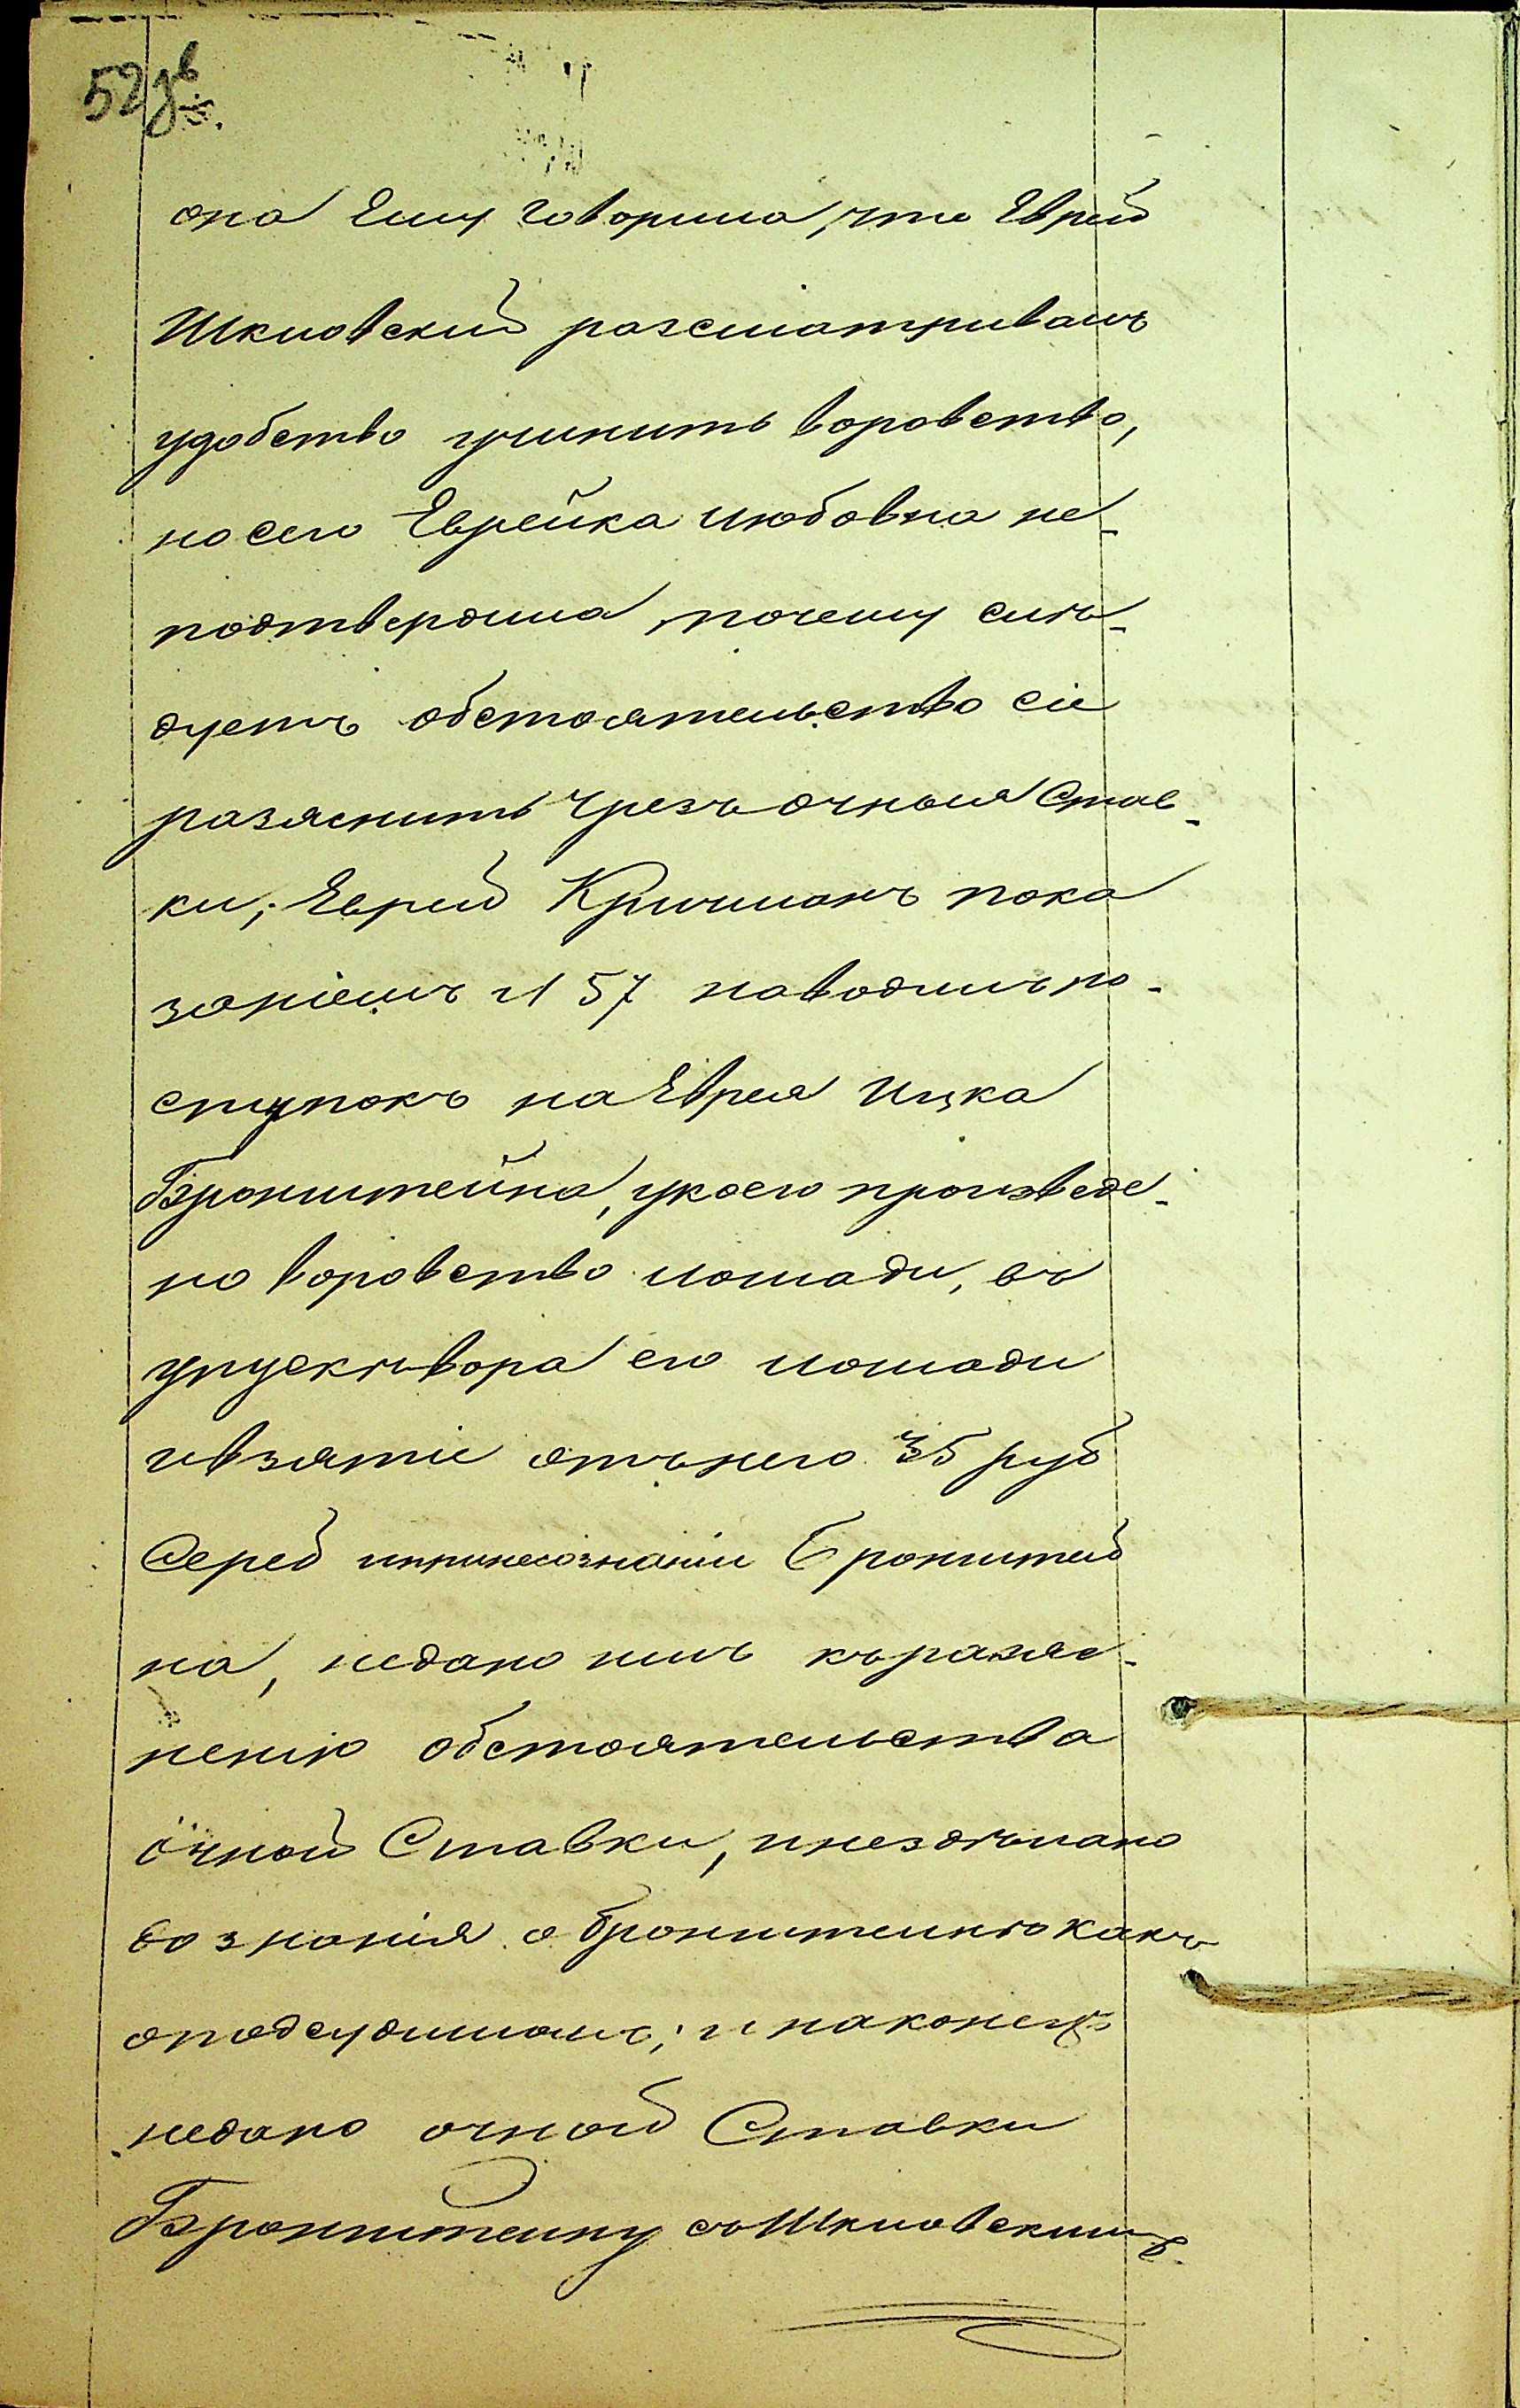 52
она Ему говорила, что Еврей
Шкловский разсматривалъ
удобство учинить воровство,
но сего Еврейка Любовна не-
подтвердила, почему слѣ-
дуетъ обстоятельство сіе
разяснить чрезъ очныя Став-
ки; Еврей Кричманъ пока
заніемъ 57 наводилъ по-
ступокъ на Еврея Ицка
Бронштейна, укоего произведе-
но воровство лошади, въ
упускѣ вора его лошади
ивзятіе отънего 35 руб
Серед ипринесознаніи Бронштей
на, недано имъ къразяс-
нению обстоятельства
очной Ставки, инездѣлано
дознанія о Бронштейнѣ какъ
оподсудимомъ; и наконецъ
недано очной Ставки
Бронштейну съШкловскимъ.